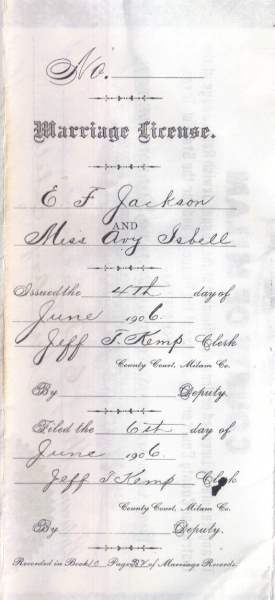 No.
Marriage License.
E. F. Jackson
AND
Miss Avy Isbell
Issued the 4th day of
June 1906.
Jeff T. Kemp Clerk
County Court, Milam Co.
By Deputy.
Filed the 6th day of
June 1906.
Jeff T Kemp Clerk
County Court, Milam Co.
By Deputy.
Recorded in Book 10 Page of Marriage Records.